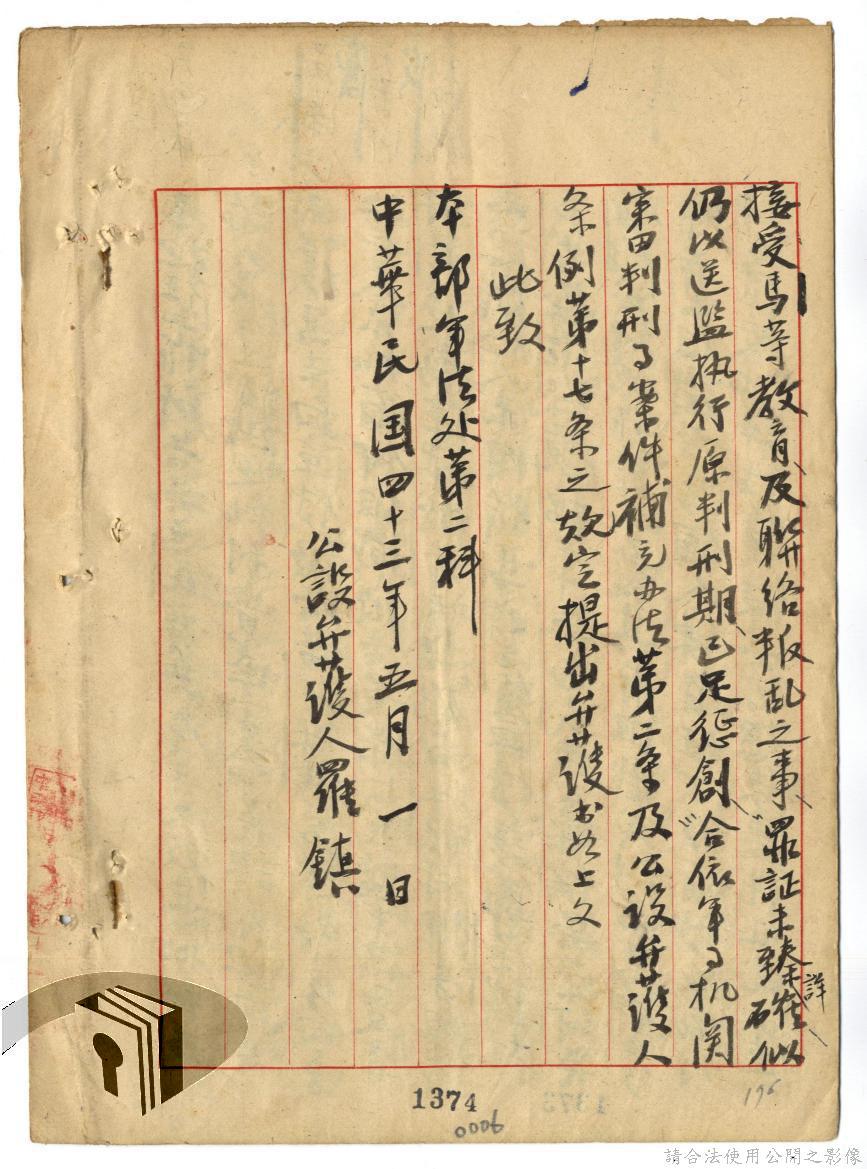 接受馬等教育及聯络叛乱之事、罪証未臻詳確、似
仍以送監执行原判刑期、已足惩創、合依軍事机関
審囬判刑事案件補充办法第二条及公設弁護人
条例第十七条之規定提出弁護書如上文
此致
本部軍法处第二科
中華民国四十三年五月一日
公設弁護人羅鎮
1374
0006
196
請合法使用公開之影像